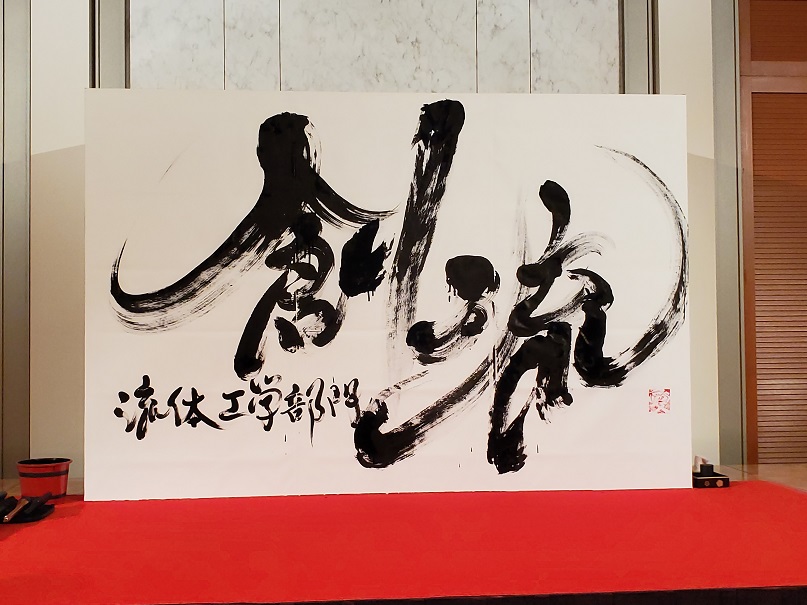 創流
流体工学部門